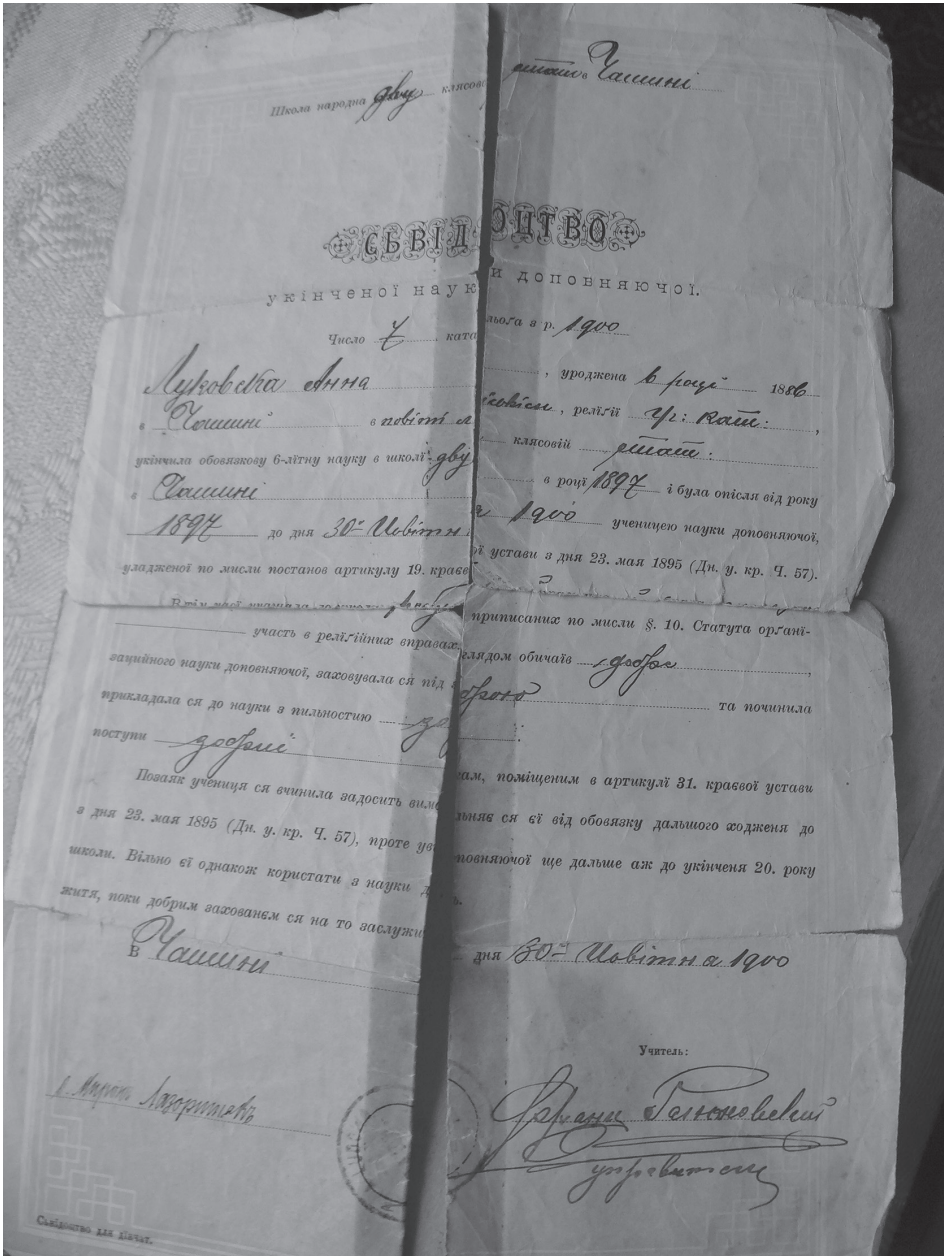 Школа народна дву клясова етат. в Чашині
СЬВІДОЦТВО
укінченої науки доповняючої.
Число 7 катальоґа з р. 1900
Луковска Анна , уроджена в році 1886
в Чашині в повіті , релїґії гр: кат: ,
укінчила обовязкову 6-лїтну науку в школї дву клясовій етат.
в Чашині в році 1897 і була опісля від року
1897 до дня 30го Цовітня 1900 ученицею науки доповняючої,
уладженої по мисли постанов артикулу 19. краєвої устави з дня 23. мая 1895 (Дн. у. кр. Ч. 57).
участь в релїґійних вправах, приписаних по мисли §. 10. Статута орґанї-
зацийного науки доповняючої, заховувала ся під зглядом обичаїв добре ,
прикладала ся до науки з пильностию доброю та починила
поступи добрі .
Позаяк учениця ся вчинила задосить вимогам, поміщеним в артикулї 31. краєвої устави
з дня 23. мая 1895 (Дн. у. кр. Ч. 57), проте увільняє ся єї від обовязку дальшого ходженя до
школи. Вільно єї однакож користати з науки доповняючої ще дальше аж до укінченя 20. року
житя, поки добрим захованєм ся на то заслужить.
В Чашині дня 30го Цовітня 1900
Учитель:
Франц
управитель
Сьвідоцтво для дївчат.